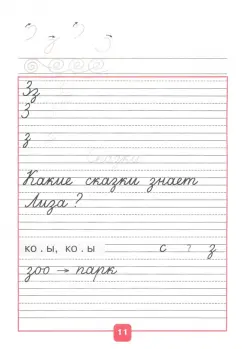 З з З З
Зз
З
з
Сказки
Какие сказки знает
Лиза ?
ко . ы, ко . ы с ? з
зоо → парк
11